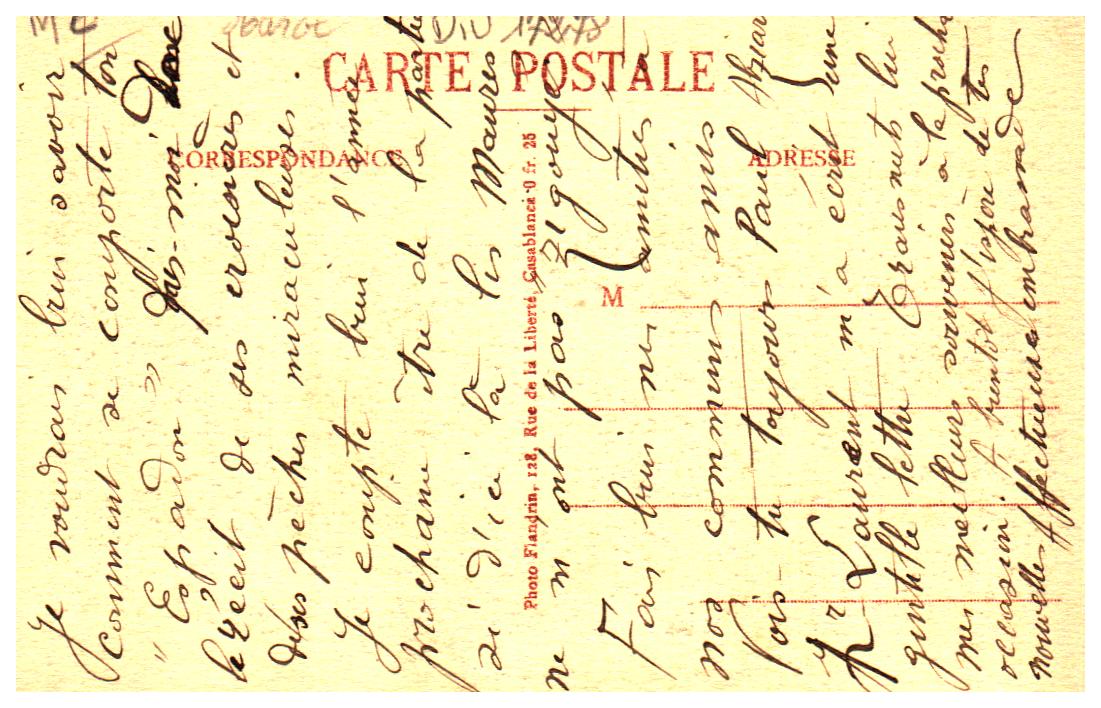 CARTE POSTALE
CORRESPONDANCE
ADRESSE
M
Photo Flandrin, 128, Rue de la Liberté, Casablanca 0 fr. 25
Je voudrais bien savoir
comment se comporte ton
" Espadon " dis-moi donc
le récit de ses croisières et
de ses pêches miraculeuses.
Je compte bien l'année
prochaine être de la partie
si d'ici là les Maures
ne m'ont pas zigouyé
Fais bien mes amitiés
nos communs amis
Vois-tu toujours Paul
Mr Laurent m'a écrit une
gentille lettre Transmets lui
mes meilleurs souvenirs à la prochaine
occasion. A bientôt j'espère de tes
nouvelles Affectueuse embrassade